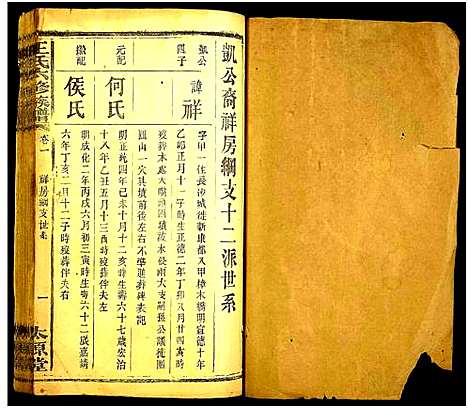 凱公裔祥房綱支十二派世系
凱公四子
諱祥
字甲一住長沙城徙新康都又甲樟木橋明宣德十年
乙卯正月十一子時生正德二年丁卯八月廿四寅時
元配
何氏
明正統四年己未十月十二亥時生壽六十七歲宏治
十八年乙丑五月十三酉時歿葬伴夫左
繼配
侯氏
明成化二年丙戌六月初三寅時生壽六十二歲嘉靖
六年丁亥二月十二子時歿葬伴夫右
王氏六修族譜
卷一
祥房綱支世系
一
太原堂